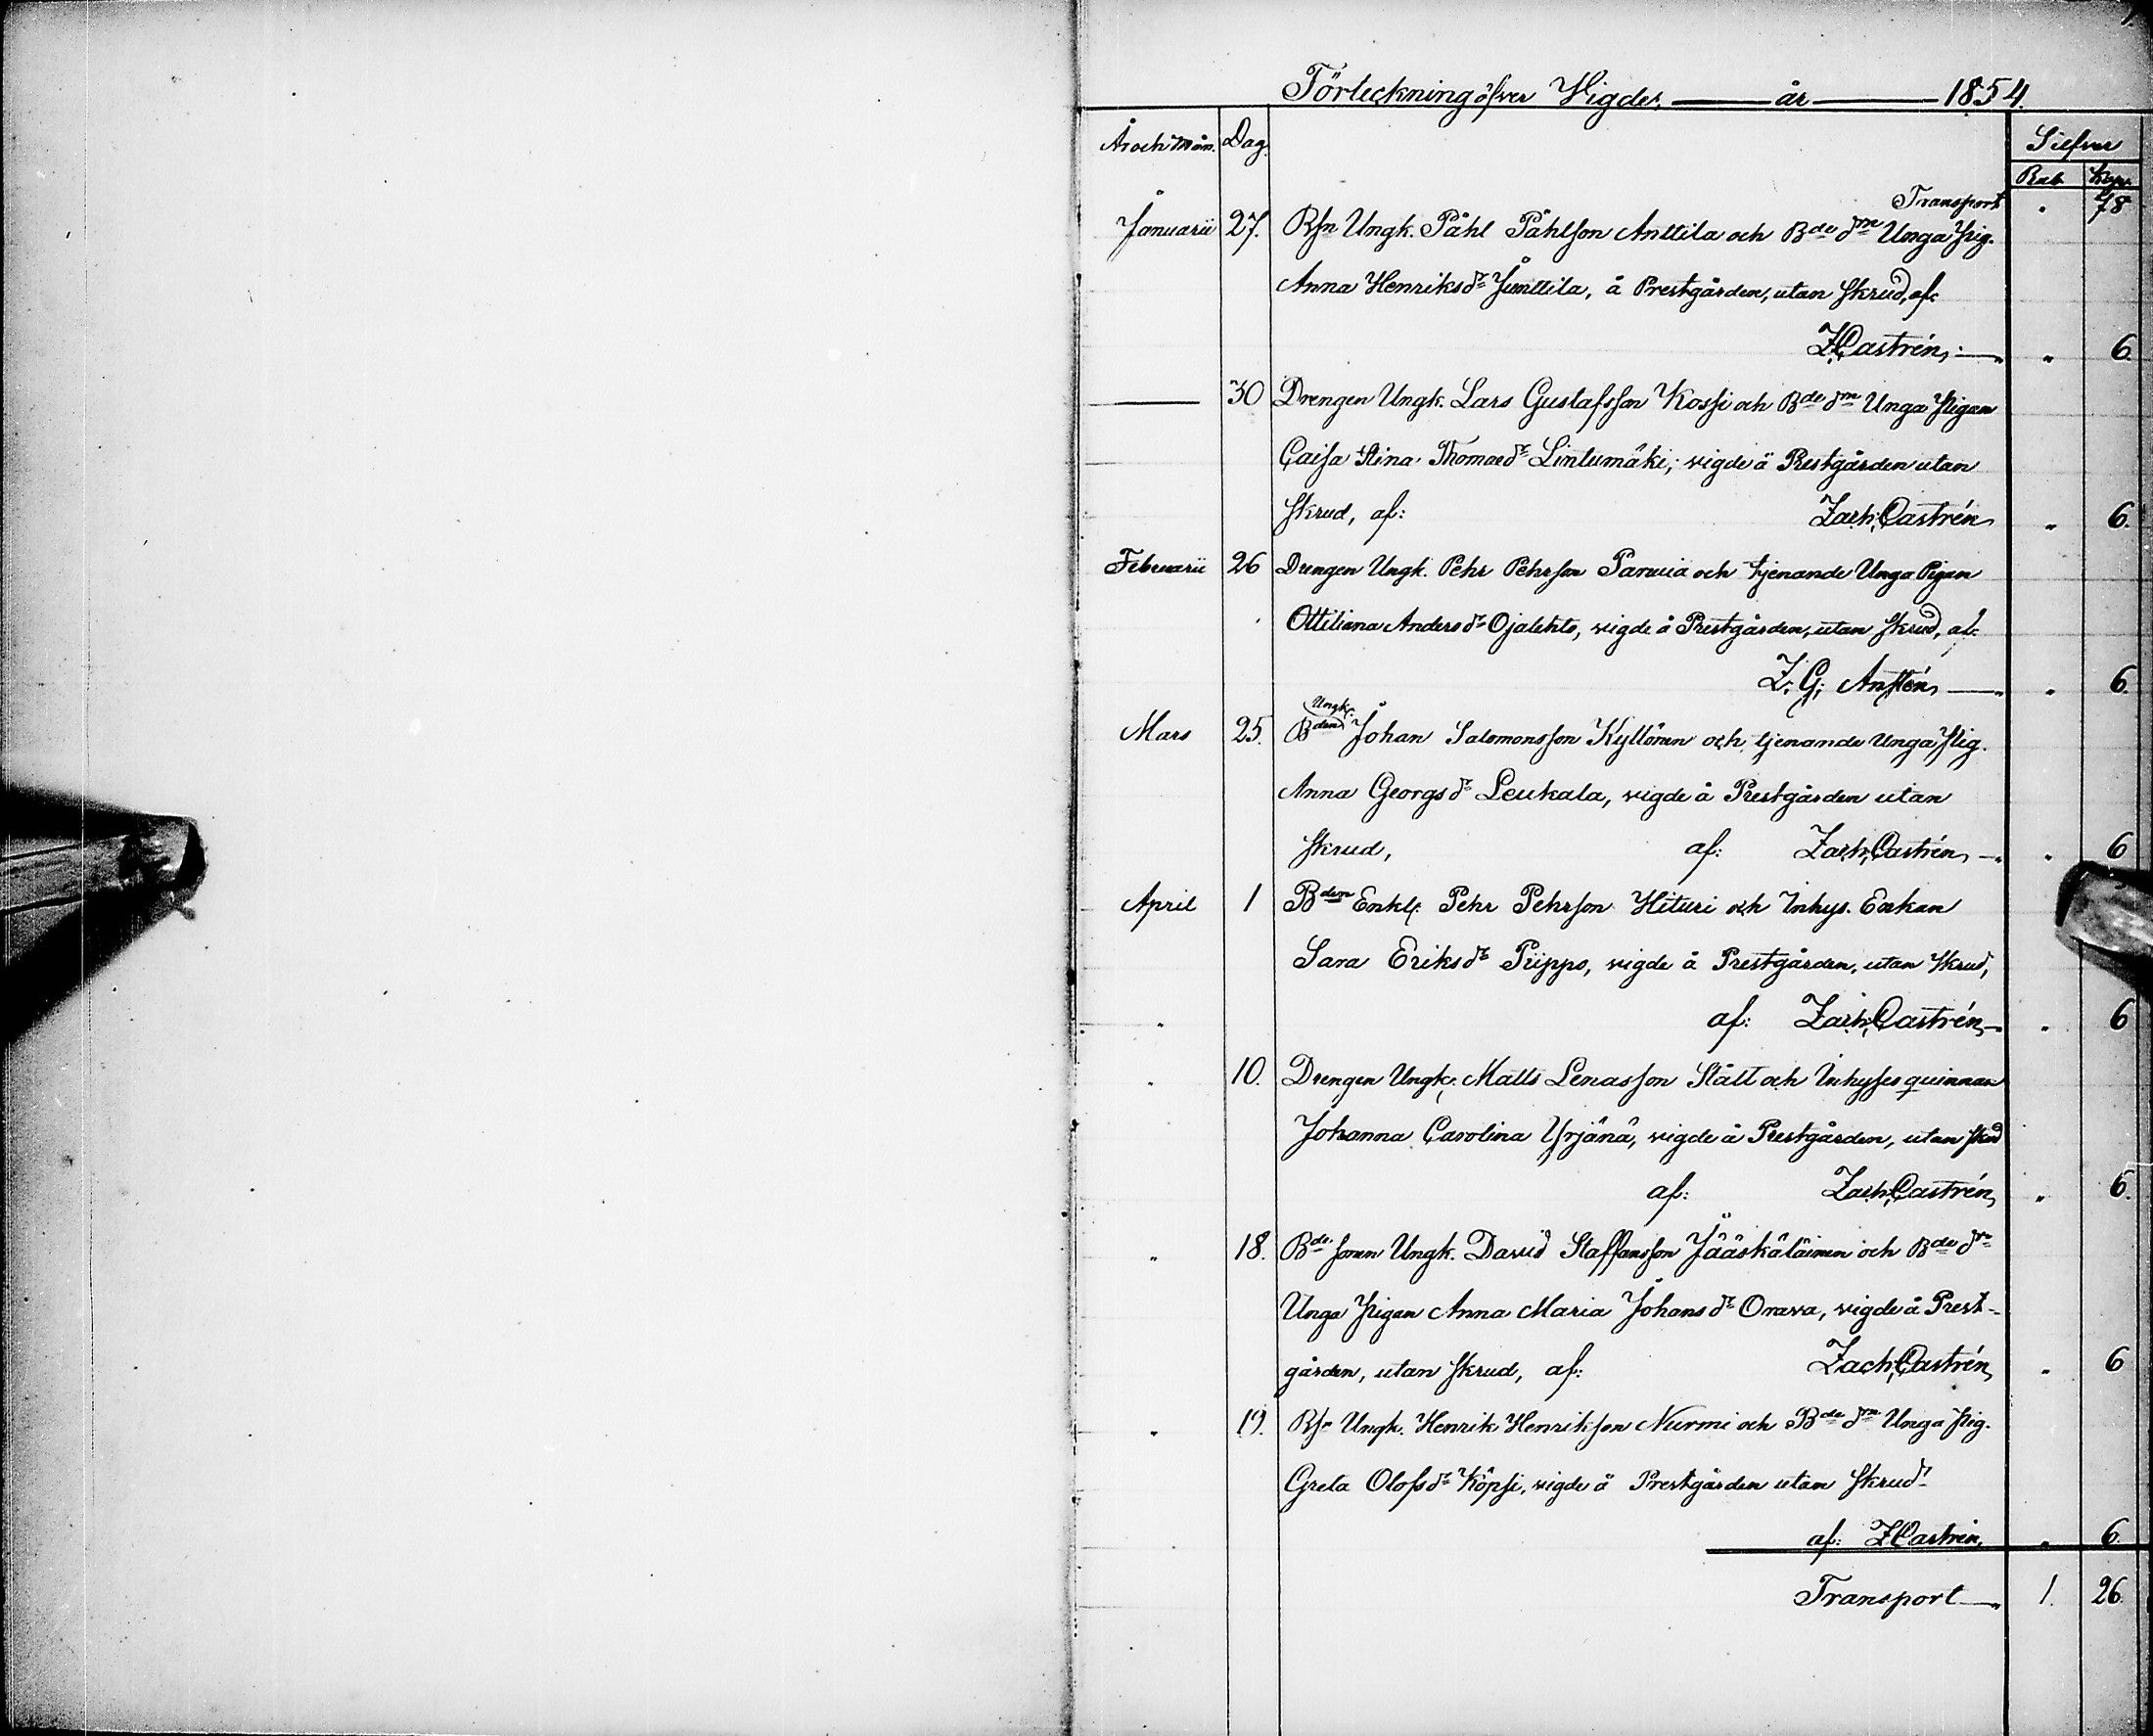 Förteckning öfver Vigde, år 1854.
År och Mån. Dag. Silfver
Rub. Kop.
Transport " 78
Januarii 27. Bsn Ungk. Påhl Påhlsson Anttila och Bde dm Unga Pig.
Anna Henriksdr Junttila, å Prestgården, utan skrud, af:
Z. Castrén, " 6.
30 Drengen Ungk. Lars Gustafsson Kossi och Bde dm Unga Pigan
Caisa Stina Thomaedr Lintumäki, vigde å Prestgården utan
skrud, af: Zach. Castrén " 6.
Februarii 26 Drengen Ungk. Pehr Pehrson och tjenande Unga Pigan
Ottiliana Andersdr Ojalehto, vigde å Prestgården, utan skrud, af:
Z. G. " 6.
Ungk.
Mars 25. Bden Johan Salomonsson Kyllönen och tjenande Unga Pig.
Anna Georgsdr Leukala, vigde å Prestgården utan
skrud, af: Zach. Castrén " 6
April 1 Bden Enkl. Pehr Pehrson Hituri och Inhys. Enkan
Sara Eriksdr Piippo, vigde å Prestgården, utan skrud,
" af: Zach. Castrén " 6
" 10. Drengen Ungk. Matts Lenasson Stått och Inhyses quinnan
Johanna Carolina Yrjänä, vigde å Prestgården, utan skrud
af: Zach. Castrén, " 6.
" 18. Bde sonen Ungk. David Staffansson Jääskäläinen och Bde dr
Unga Pigan Anna Maria Johansdr Orava, vigde å Prest-
gården, utan skrud, af: Zach. Castrén, " 6
" 19. Bsn Ungk. Henrik Henriksson Nurmi och Bde dm Unga Pig.
Greta Olofsdr Köpsi, vigde å Prestgården utan skrud
af: Z. Castrén, " 6.
Transport 1. 26.